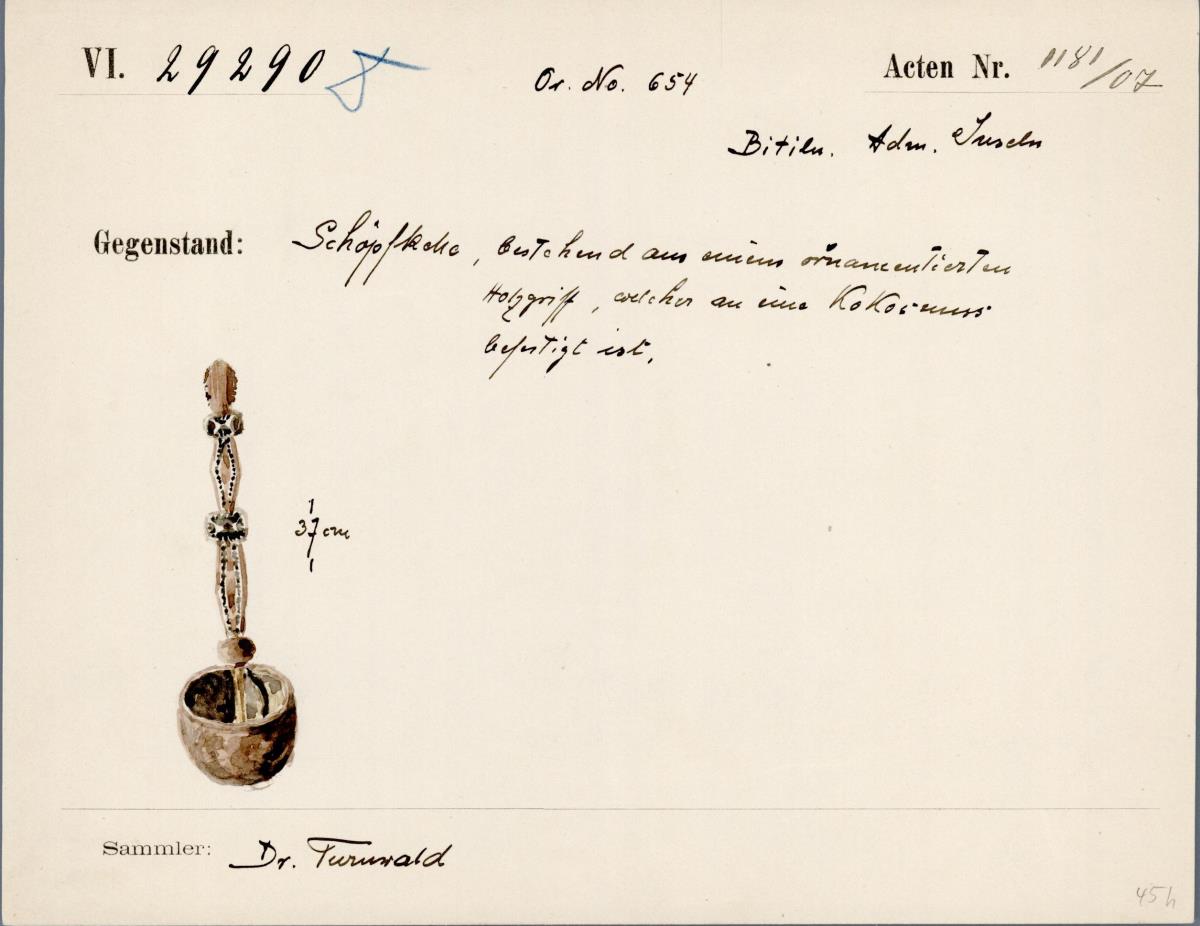 VI. 29290
Or. No. 654
Acten Nr. 1181/07
Bitiln. Adm. Inseln
Gegenstand: Schöpfkelle, bestehend aus einem ornamentierten
Holzgriff, welcher an eine Kokosnuss
befestigt ist.
37 cm
Sammler: Dr. Turnwald
45h